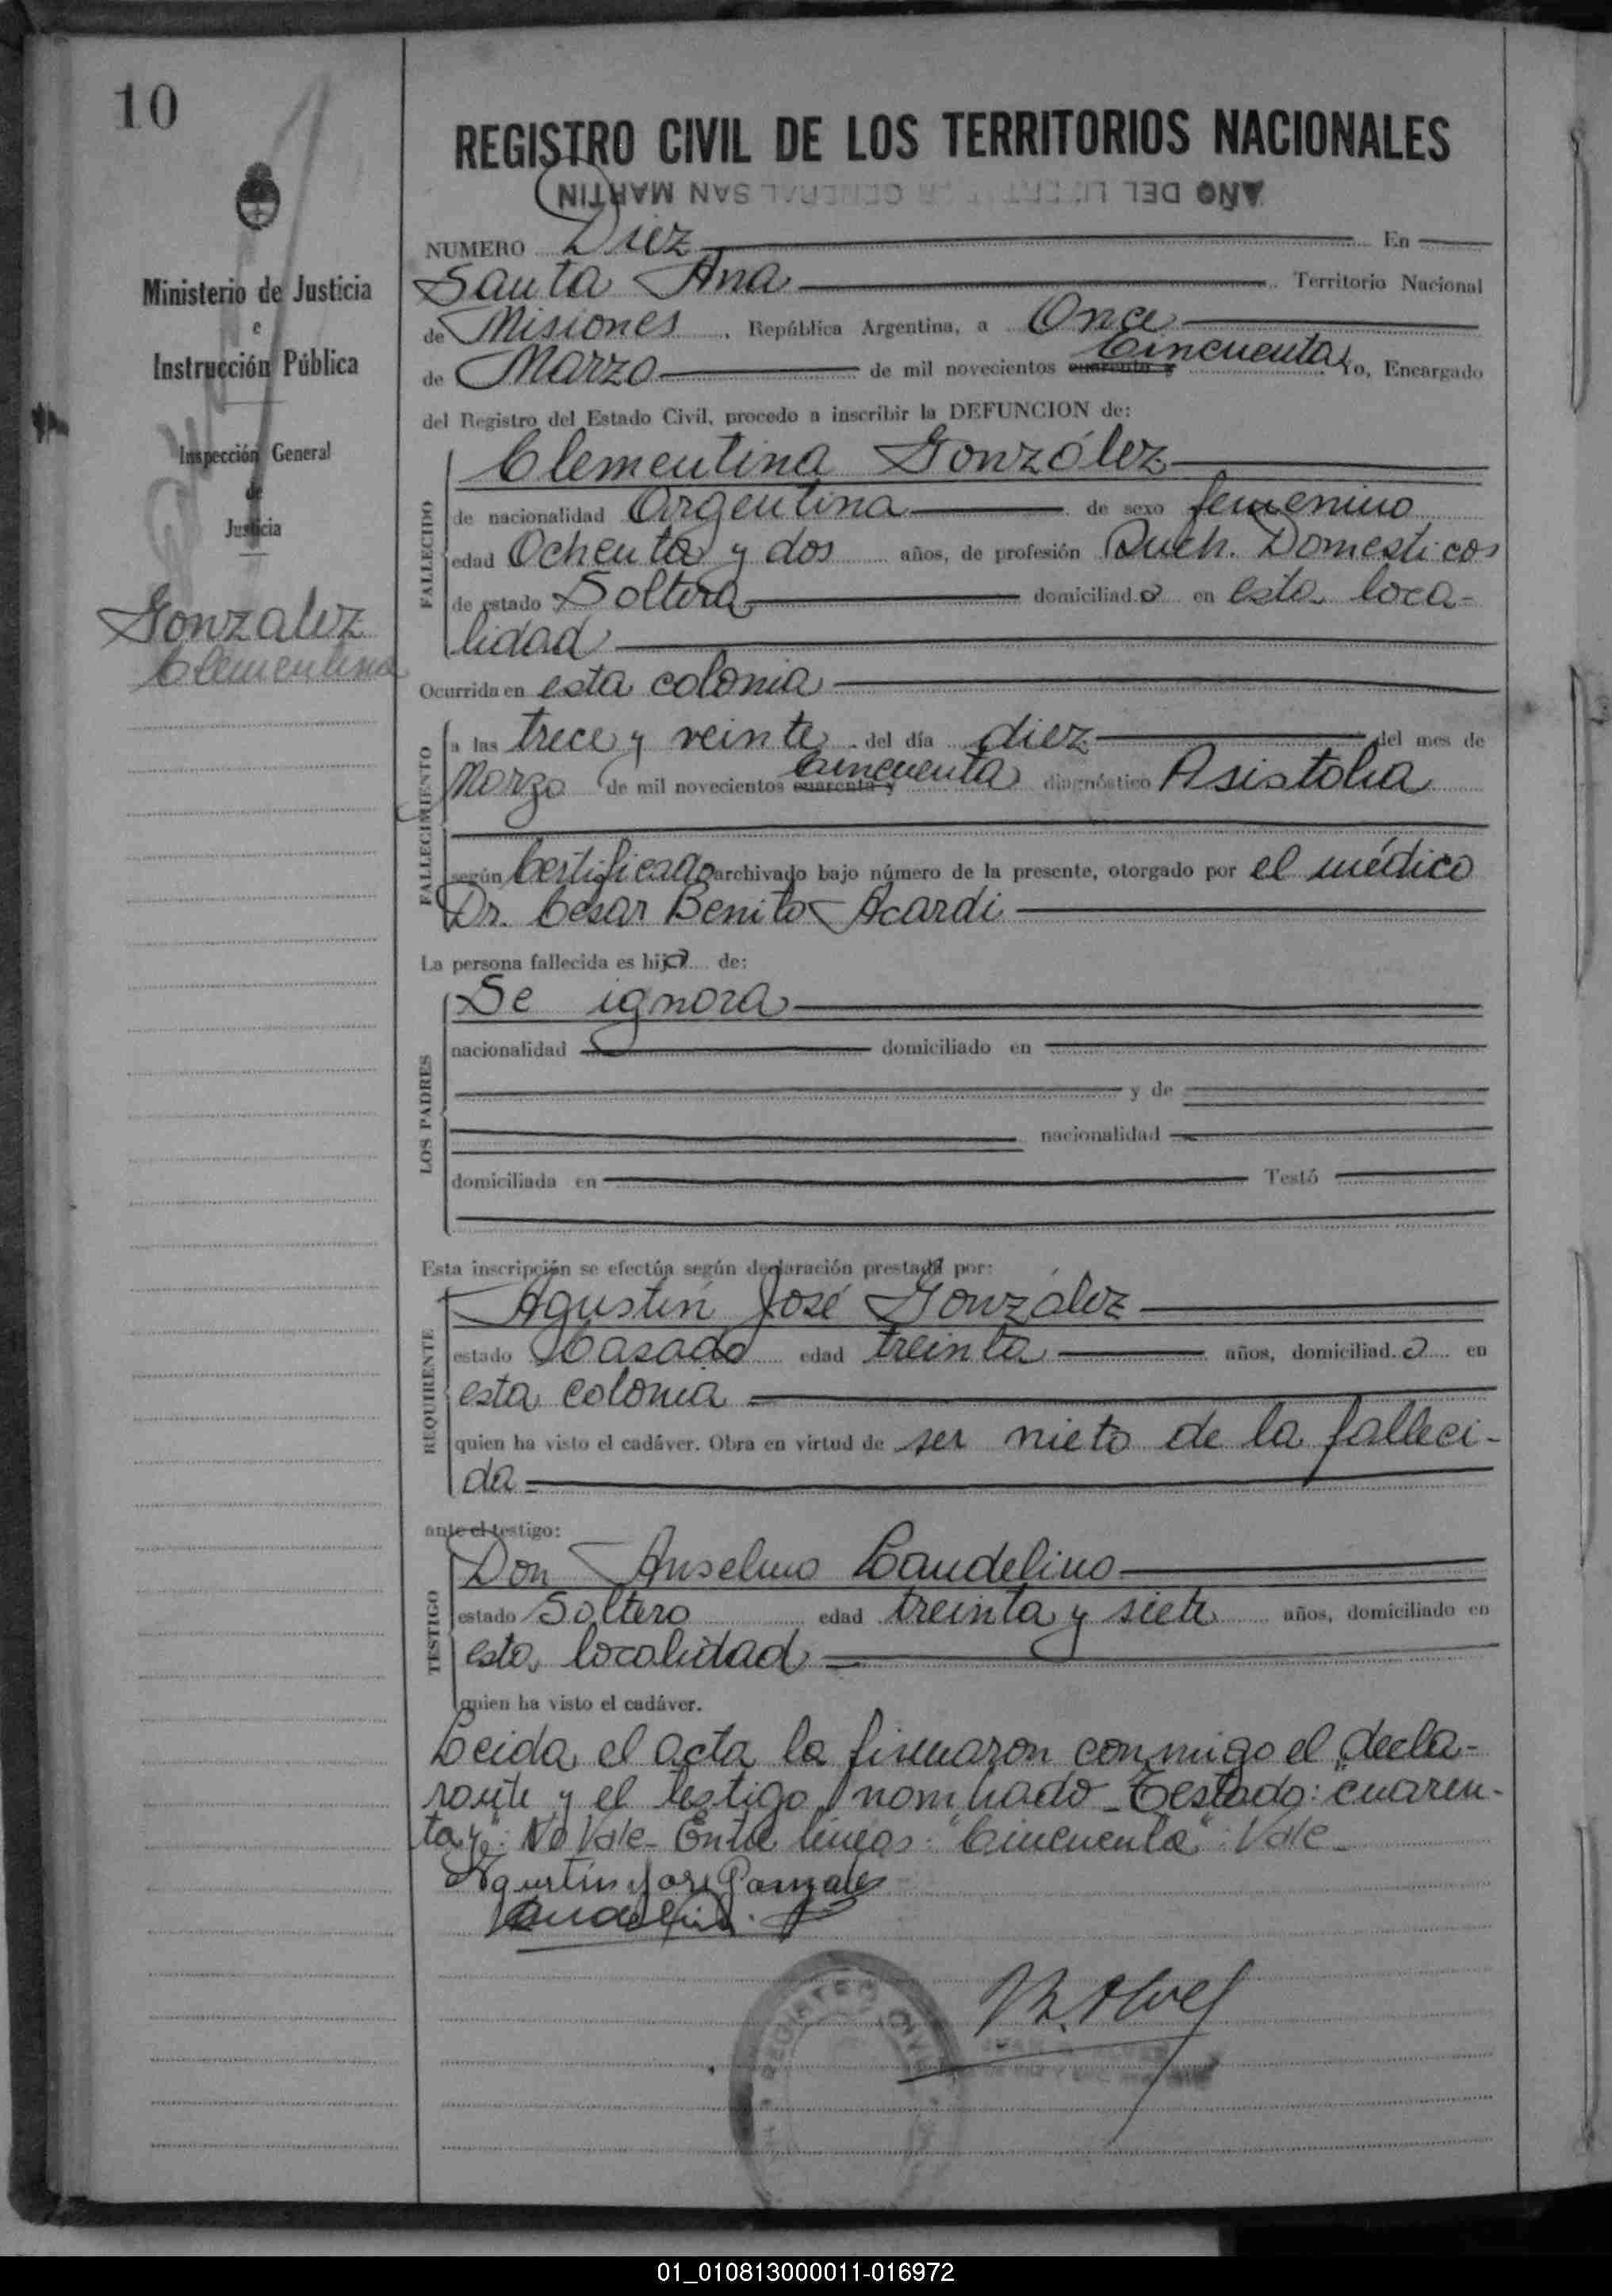 10
REGISTRO CIVIL DE LOS TERRITORIOS NACIONALES
AÑO DEL LIBERTADOR GENERAL SAN MARTIN
NUMERO Diez En
Santa Ana Territorio Nacional
de Misiones, República Argentina, a Once
de Marzo de mil novecientos cuarenta y Cincuenta Yo, Encargado
del Registro del Estado Civil, procedo a inscribir la DEFUNCION de:
Ministerio de Justicia
e
Instrucción Pública
Inspección General
de
Justicia
Gonzalez
Clementina
FALLECIDO
Clementina González
de nacionalidad Argentina de sexo femenino
edad Ochenta y dos años, de profesión Queh. Domesticos
de estado Soltera domiciliada en esta loca-
lidad
Ocurrida en esta colonia
FALLECIMIENTO
a las trece y veinte del día diez del mes de
Marzo de mil novecientos cuarenta y Cincuenta diagnóstico Asistolia
según Certificado archivado bajo número de la presente, otorgado por el médico
Dr. Cesar Benito Acardi
La persona fallecida es hija de:
LOS PADRES
Se ignora
nacionalidad domiciliado en
y de
nacionalidad
domiciliada en Testó
Esta inscripción se efectúa según declaración prestada por:
REQUIRENTE
Agustín José González
estado Casado edad treinta años, domiciliado en
esta colonia
quien ha visto el cadáver. Obra en virtud de ser nieto de la falleci-
da
ante el testigo:
TESTIGO
Don Anselmo Candelino
estado Soltero edad treinta y siete años, domiciliado en
esta localidad
quien ha visto el cadáver.
Leida el acta la firmaron conmigo el decla-
rante y el testigo nombrado - Testado: "cuaren-
ta y": No Vale - Entre líneas: "Cincuenta": Vale
Agustin Jose Gonzales
REGISTRO CIVIL
01_010813000011-016972